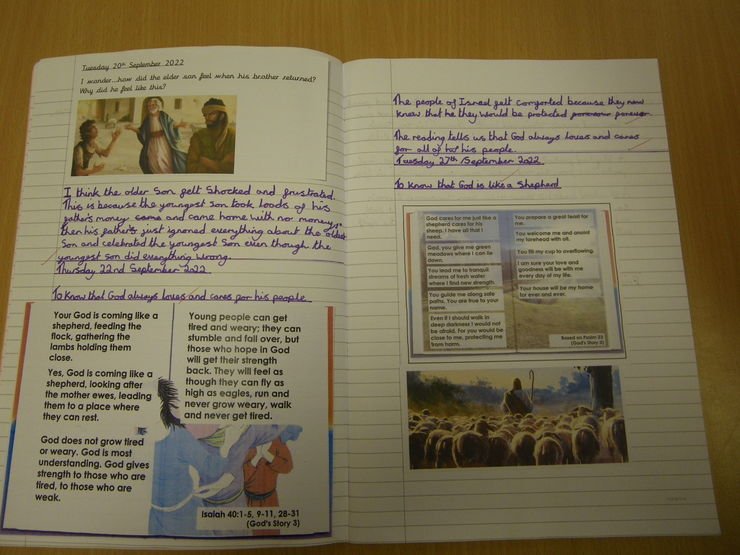 Tuesday 20th September 2022
I wonder...how did the elder son feel when his brother returned?
Why did he feel like this?
I think the older Son felt Shocked and frustrated.
This is because the youngest Son took loads of his
father's money came and came home with no money,
then his father's just ignored everything about the oldest
Son and celebrated the youngest Son even though the
youngest son did everything wrong.
Thursday 22nd September 2022
To Know that God always loves and cares for his people
Your God is coming like a
shepherd, feeding the
flock, gathering the
lambs holding them
close.
Yes, God is coming like a
shepherd, looking after
the mother ewes, leading
them to a place where
they can rest.
God does not grow tired
or weary. God is most
understanding. God gives
strength to those who are
tired, to those who are
weak.
Young people can get
tired and weary; they can
stumble and fall over, but
those who hope in God
will get their strength
back. They will feel as
though they can fly as
high as eagles, run and
never grow weary, walk
and never get tired.
Isaiah 40:1-5, 9-11, 28-31
(God's Story 3)
The people of Israel felt comforted because they now
know that he they would be protected forever.
The reading tells us that God always loves and cares
for all of his people.
Tuesday 27th September 2022
To Know that God is like a Shepherd
God cares for me just like a
shepherd cares for his
sheep. I have all that I
need.
God, you give me green
meadows where I can lie
down.
You lead me to tranquil
streams of fresh water
where I find new strength.
You guide me along safe
paths. You are true to your
name.
Even if I should walk in
deep darkness I would not
be afraid. For you would be
close to me, protecting me
from harm.
You prepare a great feast for
me.
You welcome me and anoint
my forehead with oil.
You fill my cup to overflowing.
I am sure your love and
goodness will be with me
every day of my life.
Your house will be my home
for ever and ever.
Based on Psalm 23
(God's Story 2)